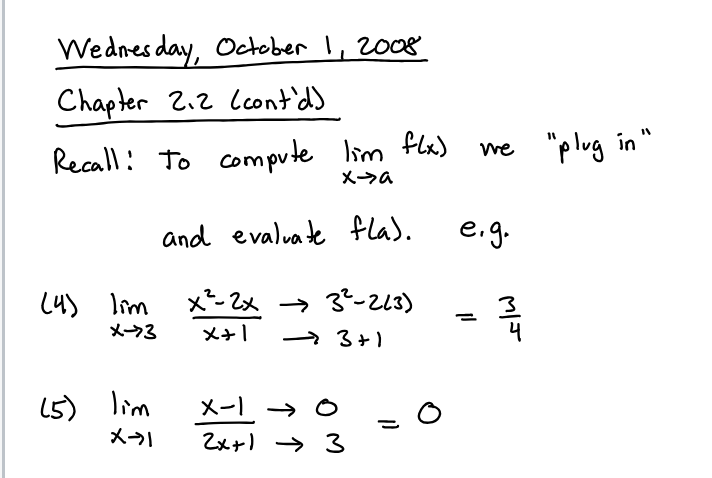 Wednesday, October 1, 2008
Chapter 2.2 (cont'd)
Recall: To compute lim x→a f(x) we "plug in"
and evaluate f(a). e.g.
(4) lim x→3 (x²-2x)/(x+1) → 3²-2(3) → 3+1 = 3/4
(5) lim x→1 (x-1)/(2x+1) → 0 → 3 = 0